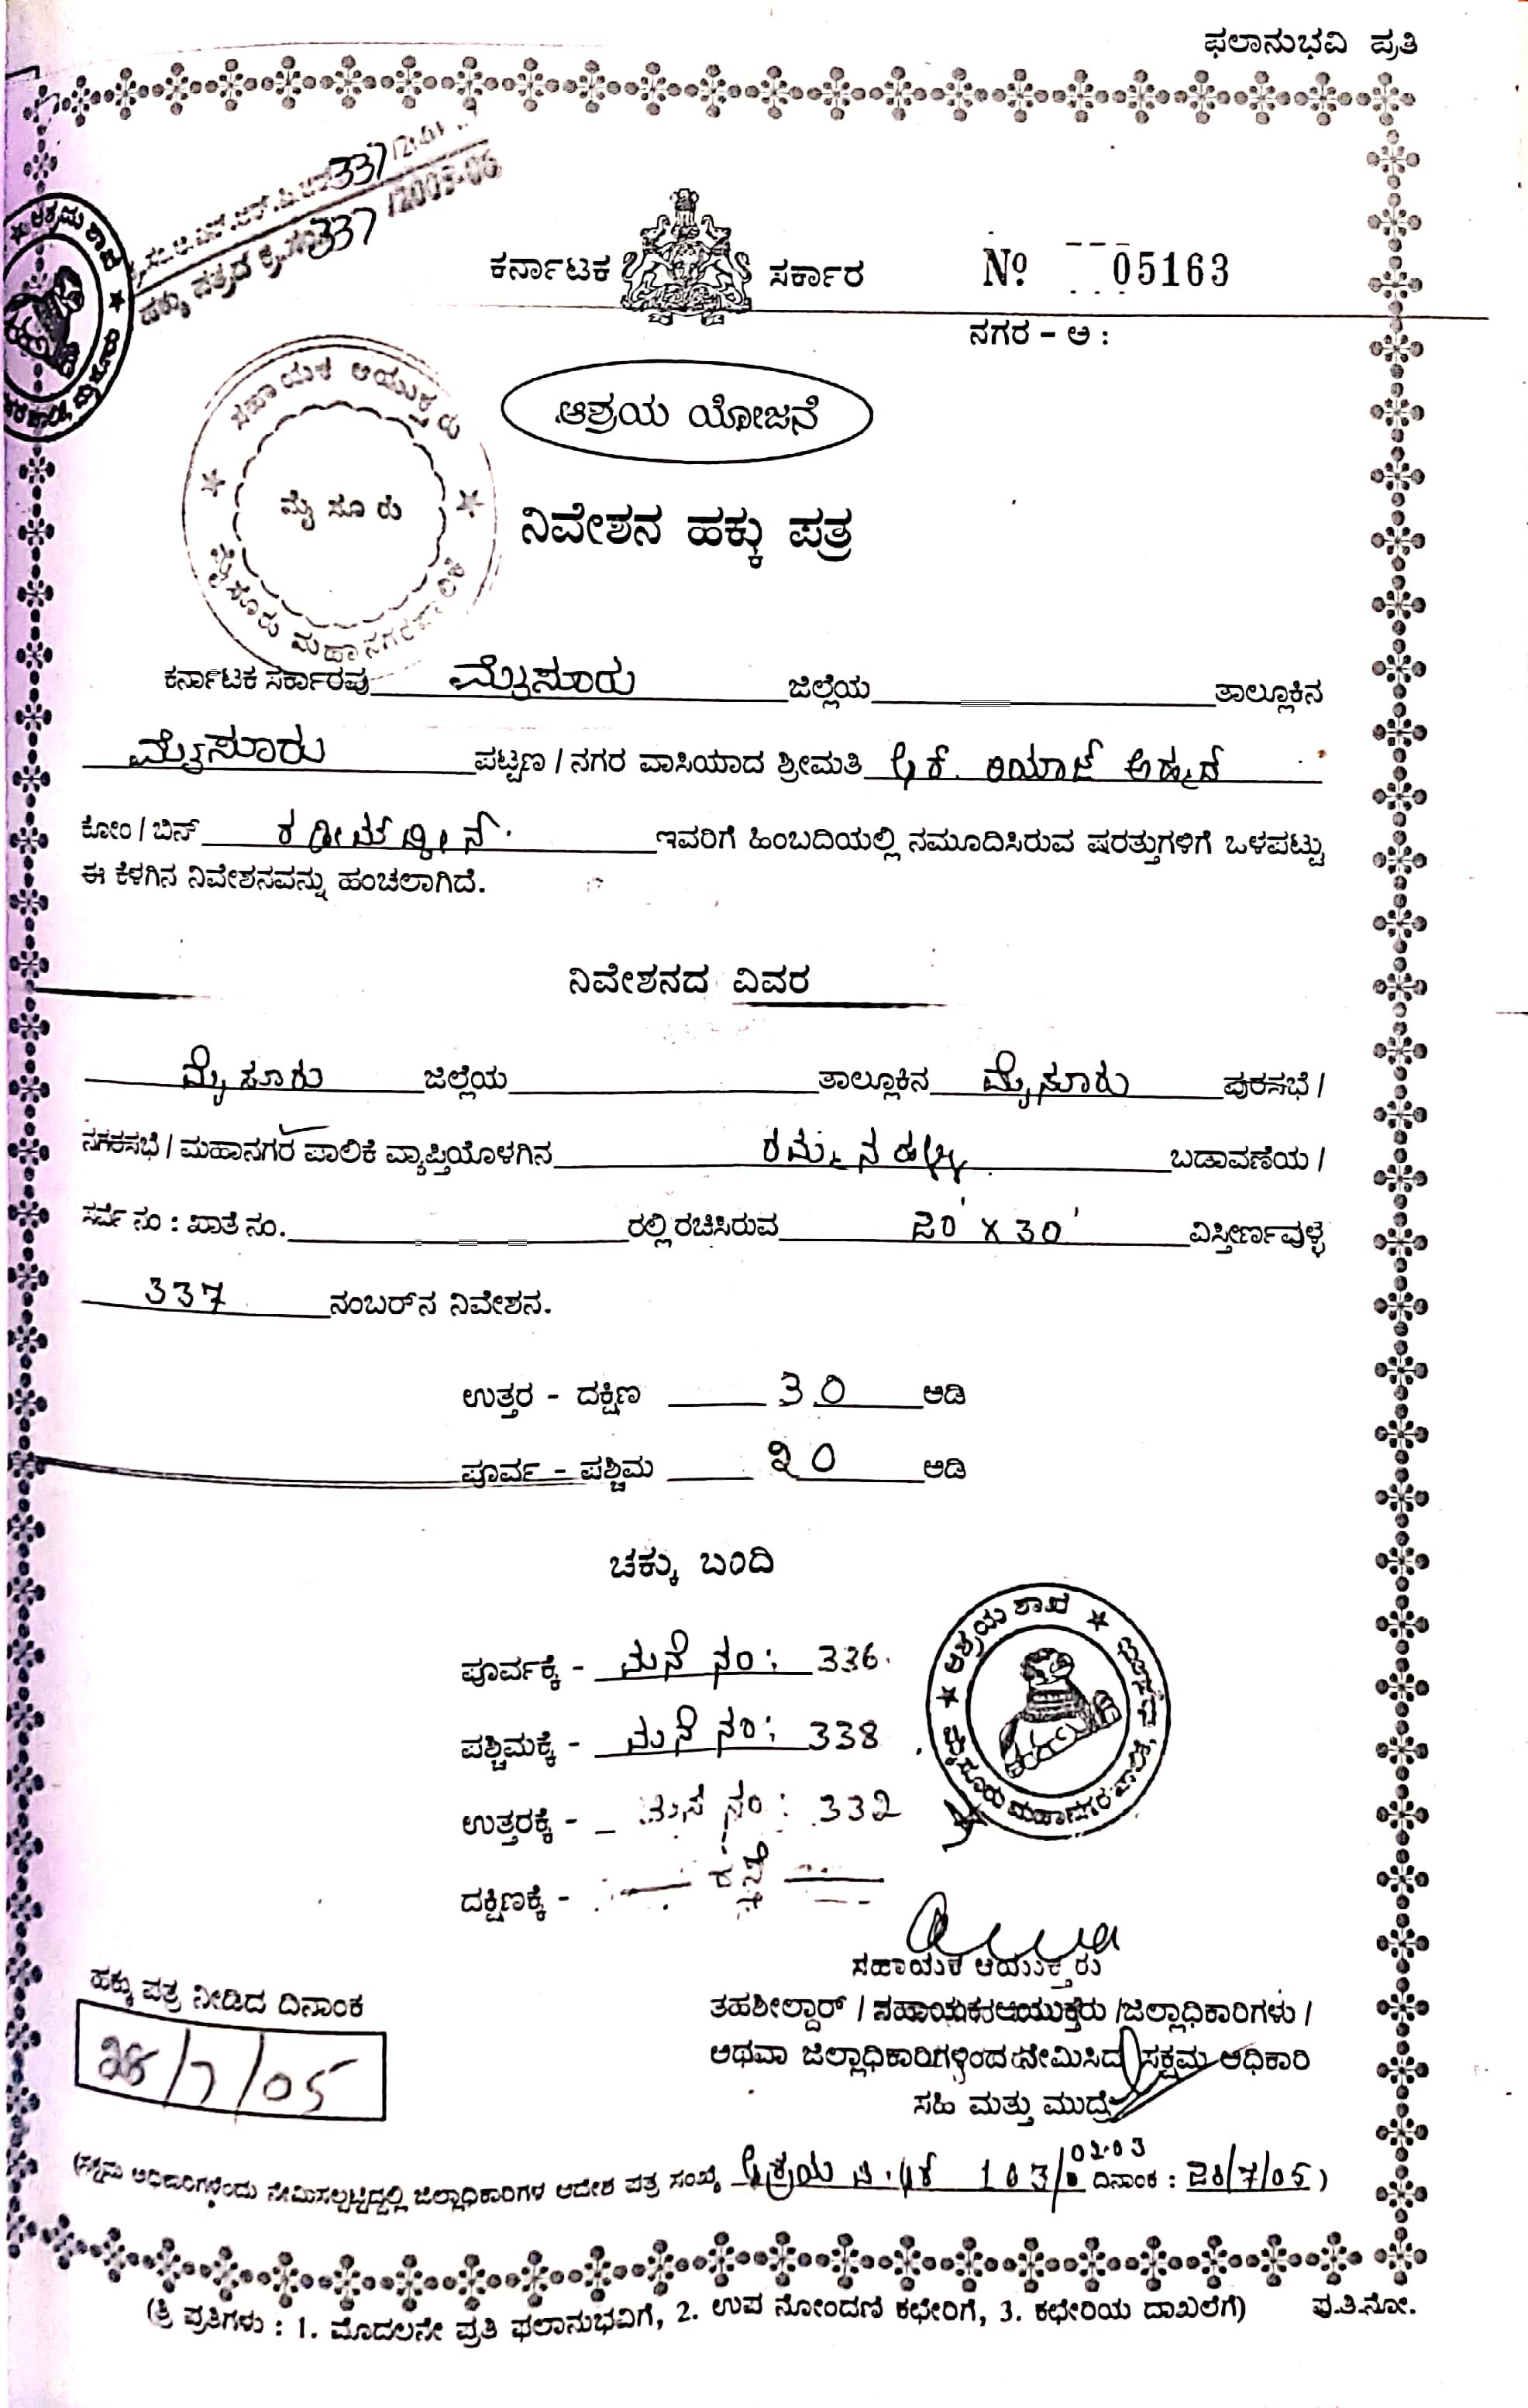 ಫಲಾನುಭವಿ ಪ್ರತಿ
337
ಹಕ್ಕು ಪತ್ರದ ಕ್ರ.ಸಂ 337 /2005-06
ಕರ್ನಾಟಕ ಸರ್ಕಾರ
Nº 05163
ನಗರ - ಅ :
★ ಆಶ್ರಯ ಶಾಖೆ ★
ಸಹಾಯಕ ಆಯುಕ್ತರು
★ ಮೈಸೂರು ★
ಮೈಸೂರು ಮಹಾನಗರಪಾಲಿಕೆ
ಆಶ್ರಯ ಯೋಜನೆ
ನಿವೇಶನ ಹಕ್ಕು ಪತ್ರ
ಕರ್ನಾಟಕ ಸರ್ಕಾರವು ಮೈಸೂರು ಜಿಲ್ಲೆಯ ತಾಲ್ಲೂಕಿನ
ಮೈಸೂರು ಪಟ್ಟಣ / ನಗರ ವಾಸಿಯಾದ ಶ್ರೀಮತಿ ರಿಯಾಜ್ ಅಹ್ಮದ್
ಕೋಂ / ಬಿನ್ ಇವರಿಗೆ ಹಿಂಬದಿಯಲ್ಲಿ ನಮೂದಿಸಿರುವ ಷರತ್ತುಗಳಿಗೆ ಒಳಪಟ್ಟು
ಈ ಕೆಳಗಿನ ನಿವೇಶನವನ್ನು ಹಂಚಲಾಗಿದೆ.
ನಿವೇಶನದ ವಿವರ
ಮೈಸೂರು ಜಿಲ್ಲೆಯ ತಾಲ್ಲೂಕಿನ ಮೈಸೂರು ಪುರಸಭೆ /
ನಗರಸಭೆ / ಮಹಾನಗರ ಪಾಲಿಕೆ ವ್ಯಾಪ್ತಿಯೊಳಗಿನ ರಮ್ಮನಹಳ್ಳಿ ಬಡಾವಣೆಯ /
ಸರ್ವೆ ನಂ : ಖಾತೆ ನಂ. ರಲ್ಲಿ ರಚಿಸಿರುವ 20' X 30' ವಿಸ್ತೀರ್ಣವುಳ್ಳ
337 ನಂಬರ್‌ನ ನಿವೇಶನ.
ಉತ್ತರ - ದಕ್ಷಿಣ 30 ಅಡಿ
ಪೂರ್ವ - ಪಶ್ಚಿಮ 20 ಅಡಿ
ಚಕ್ಕು ಬಂದಿ
ಪೂರ್ವಕ್ಕೆ - ಮನೆ ನಂ: 336.
ಪಶ್ಚಿಮಕ್ಕೆ - ಮನೆ ನಂ: 338
ಉತ್ತರಕ್ಕೆ - ಮನೆ ನಂ: 332
ದಕ್ಷಿಣಕ್ಕೆ - ರಸ್ತೆ
★ ಆಶ್ರಯ ಶಾಖೆ ★
ಮೈಸೂರು ಮಹಾನಗರ ಪಾಲಿಕೆ
ಸಹಾಯಕ ಆಯುಕ್ತರು
ತಹಶೀಲ್ದಾರ್ / ಸಹಾಯಕ ಆಯುಕ್ತರು / ಜಿಲ್ಲಾಧಿಕಾರಿಗಳು /
ಅಥವಾ ಜಿಲ್ಲಾಧಿಕಾರಿಗಳಿಂದ ನೇಮಿಸಿದ ಸಕ್ಷಮ ಅಧಿಕಾರಿ
ಸಹಿ ಮತ್ತು ಮುದ್ರೆ
ಹಕ್ಕು ಪತ್ರ ನೀಡಿದ ದಿನಾಂಕ
28/7/05
(ಸಕ್ಷಮ ಅಧಿಕಾರಿಗಳೆಂದು ನೇಮಿಸಲ್ಪಟ್ಟಿದ್ದಲ್ಲಿ ಜಿಲ್ಲಾಧಿಕಾರಿಗಳ ಆದೇಶ ಪತ್ರ ಸಂಖ್ಯೆ ಆಶ್ರಯ 103/02-03 ದಿನಾಂಕ : 28/7/05)
(ತ್ರಿ ಪ್ರತಿಗಳು : 1. ಮೊದಲನೇ ಪ್ರತಿ ಫಲಾನುಭವಿಗೆ, 2. ಉಪ ನೋಂದಣಿ ಕಛೇರಿಗೆ, 3. ಕಛೇರಿಯ ದಾಖಲೆಗೆ) ಪು.ತಿ.ನೋ.